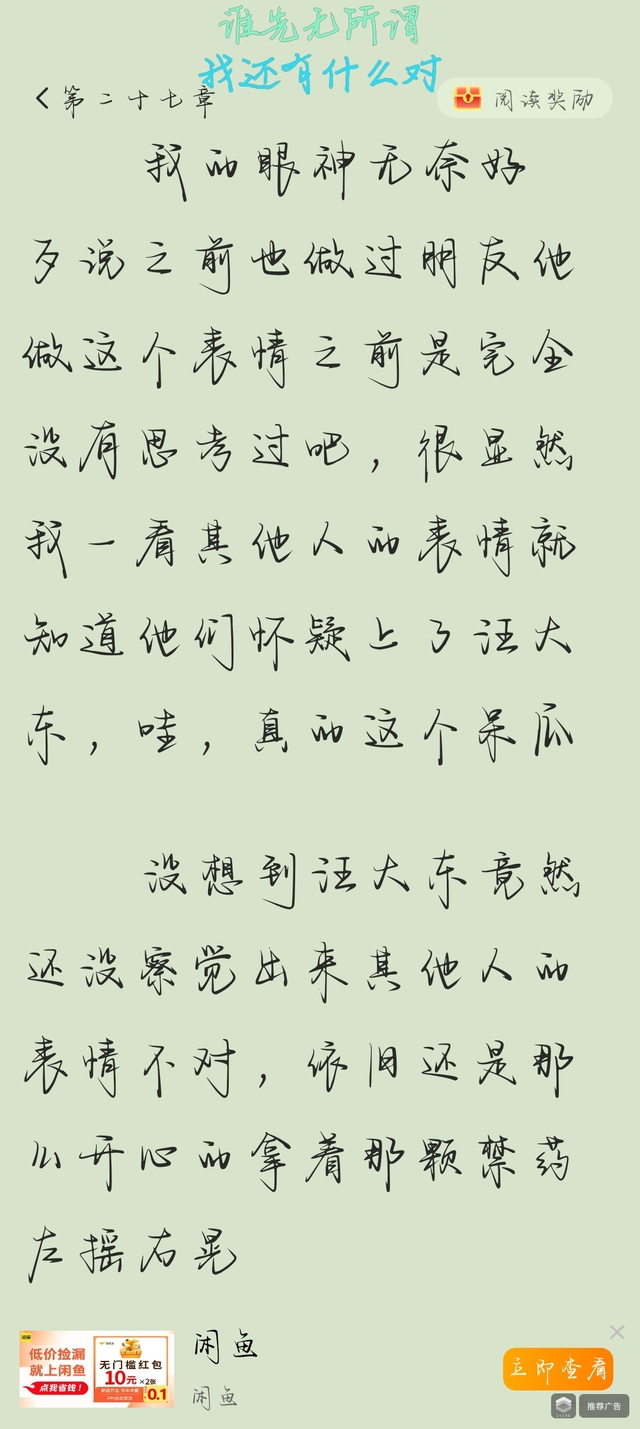 谁先无所谓
我还有什么对
第二十七章
阅读奖励
我的眼神无奈好
歹说之前也做过朋友他
做这个表情之前是完全
没有思考过吧，很显然
我一看其他人的表情就
知道他们怀疑上了汪大
东，哇，真的这个呆瓜
没想到汪大东竟然
还没察觉出来其他人的
表情不对，依旧还是那
么开心的拿着那颗禁药
左摇右晃
低价捡漏
就上闲鱼
点我省钱！
无门槛红包
10元×2张
0.1
闲鱼
闲鱼
立即查看
推荐广告